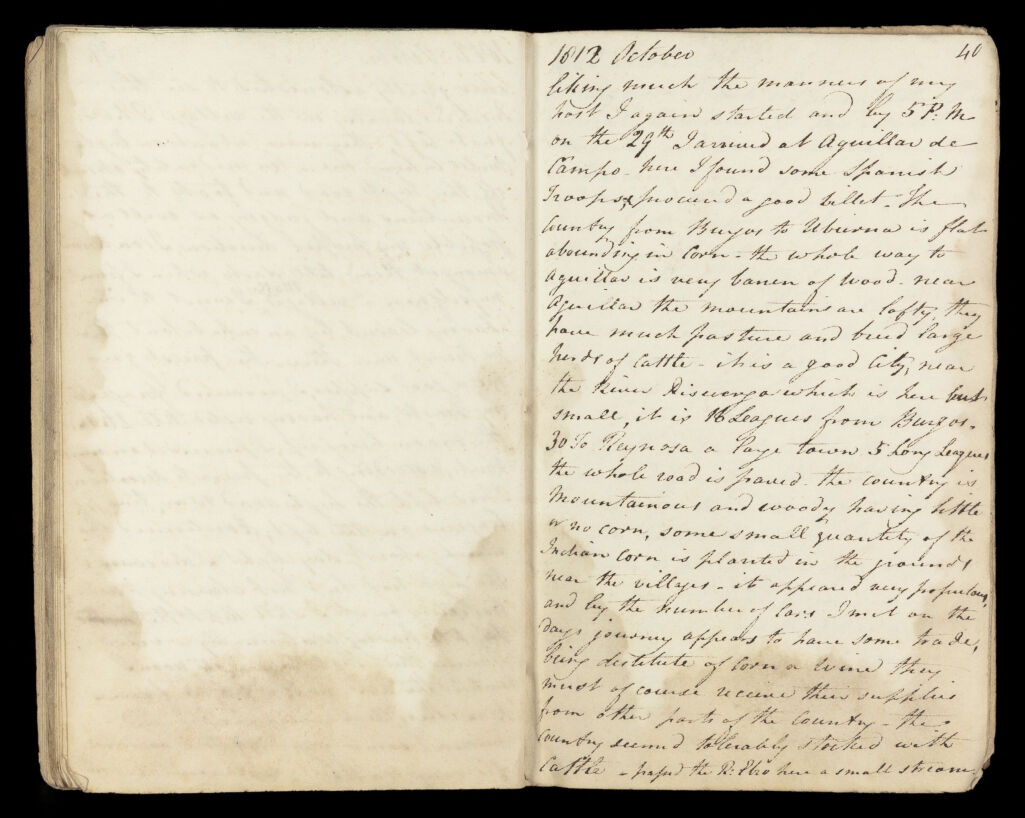 1812 October 40
liking much the manners of my
host I again started and by 5 P: M
on the 29th I arrived at Aguillar de
Campo - here I found some Spanish
Troops & procured a good billet - The
Country from Burgos to Ubierna is flat
abounding in Corn - the whole way to
Aguillar is very barren of wood - near
Aguillar the mountains are lofty; they
have much pasture and breed large
herds of Cattle - it is a good City, near
the River which is here but
small, it is 16 Leagues from Burgos.
30 To Reynosa a large town 5 Long Leagues
the whole road is paved - the country is
Mountainous and woody having little
or no corn, some small quantity of the
Indian Corn is planted in the grounds
near the villages - it appeared very populous,
and by the number of Cars I met on the
days journey appears to have some trade,
being destitute of Corn or Wine they
must of course receive their supplies
from other parts of the Country - the
Country seemed tolerably stocked with
Cattle - passed the R: Ebro here a small stream.